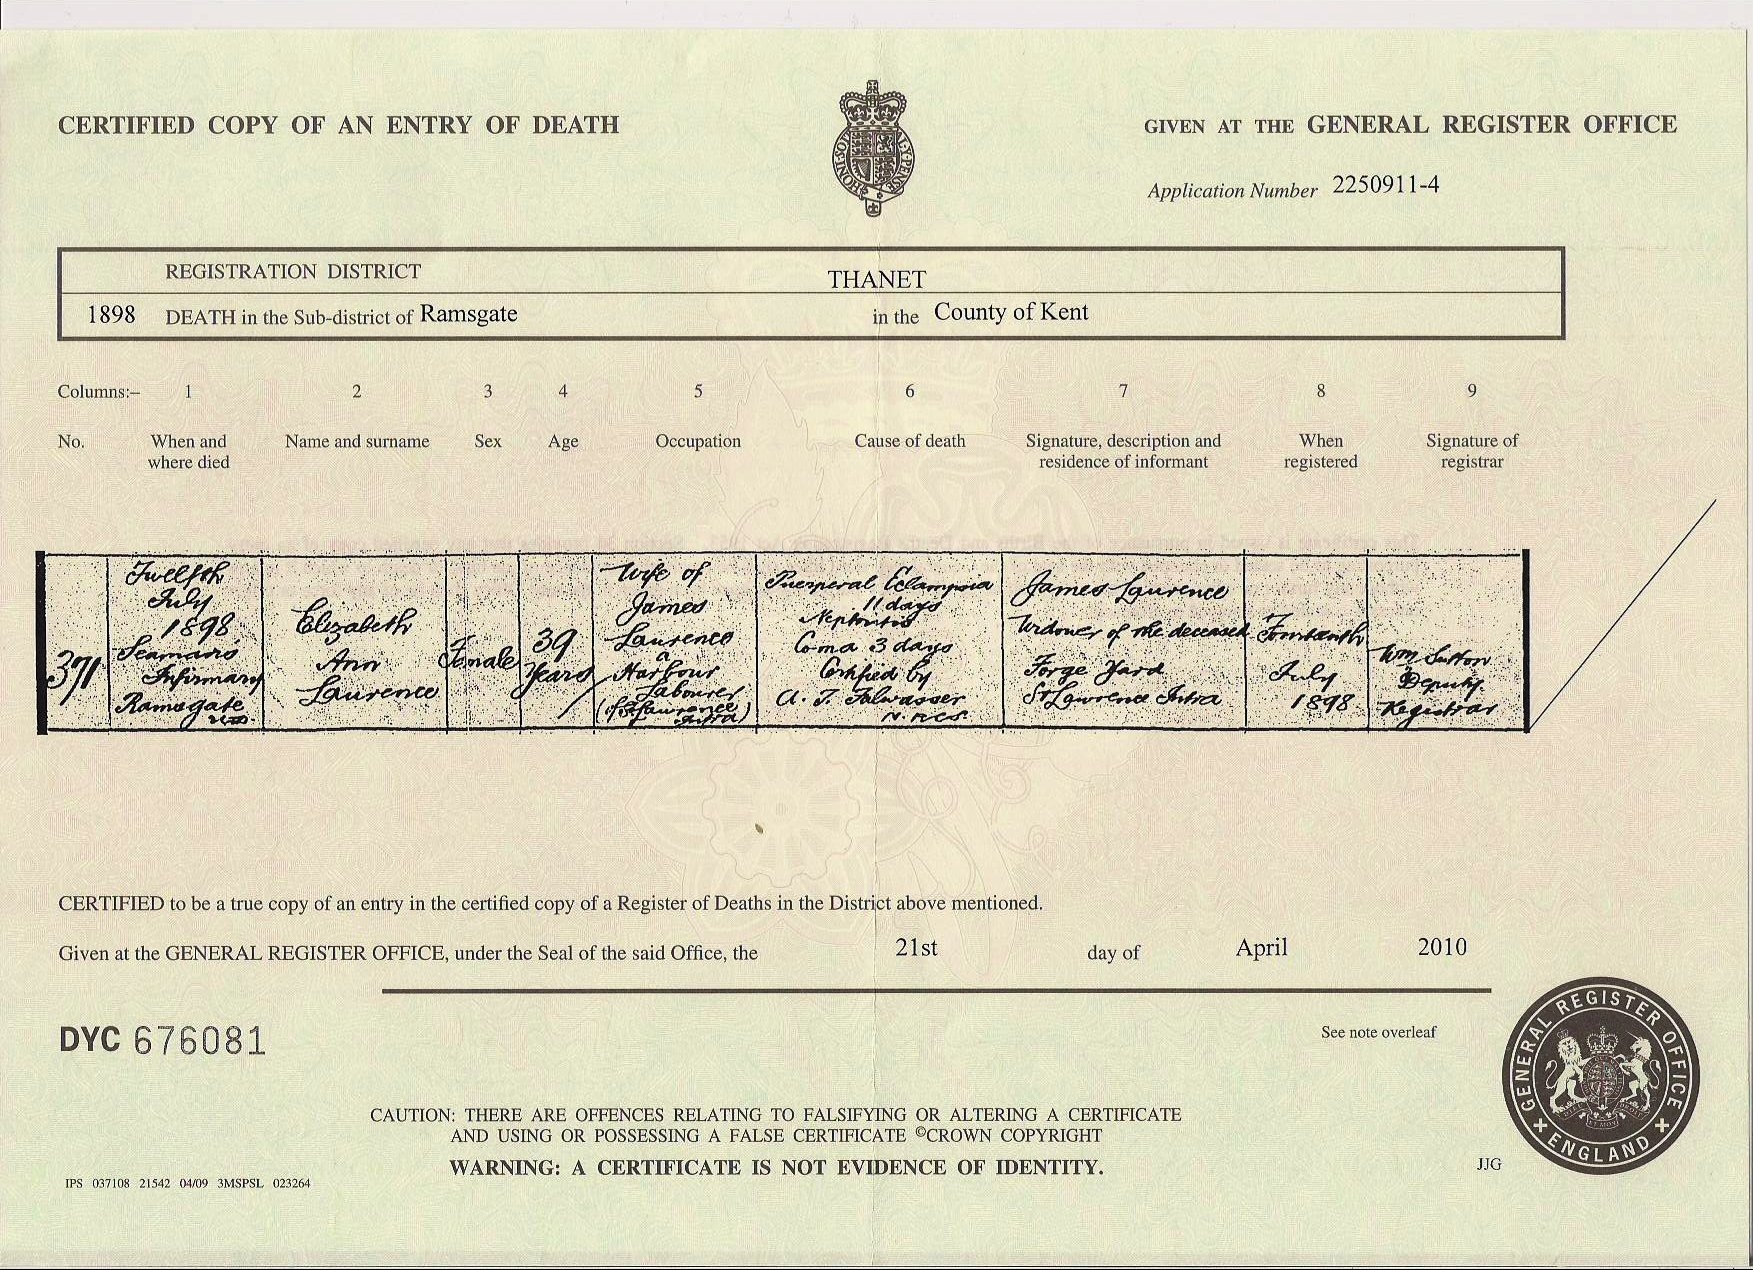 CERTIFIED COPY OF AN ENTRY OF DEATH
GIVEN AT THE GENERAL REGISTER OFFICE
Application Number 2250911-4
REGISTRATION DISTRICT THANET
1898 DEATH in the Sub-district of Ramsgate in the County of Kent
Columns:– 1 2 3 4 5 6 7 8 9
No.
When and
where died
Name and surname
Sex
Age
Occupation
Cause of death
Signature, description and
residence of informant
When
registered
Signature of
registrar
371
Twelfth
July
1898
Seamans
Infirmary
Ramsgate
Elizabeth
Ann
Laurence
Female
39
Years
Wife of
James
Laurence
a
Harbour
Labourer
(of St Lawrence
Intra)
Puerperal Eclampsia
11 days
Nephritis
Coma 3 days
Certified by
A. F. Falwasser
James Laurence
Widower of the deceased
Forge Yard
St Lawrence Intra
Fourteenth
July
1898
Wm Sutton
Deputy
Registrar
CERTIFIED to be a true copy of an entry in the certified copy of a Register of Deaths in the District above mentioned.
Given at the GENERAL REGISTER OFFICE, under the Seal of the said Office, the 21st day of April 2010
DYC 676081
See note overleaf
GENERAL REGISTER OFFICE
ENGLAND
CAUTION: THERE ARE OFFENCES RELATING TO FALSIFYING OR ALTERING A CERTIFICATE
AND USING OR POSSESSING A FALSE CERTIFICATE ©CROWN COPYRIGHT
WARNING: A CERTIFICATE IS NOT EVIDENCE OF IDENTITY.
JJG
IPS 037108 21542 04/09 3MSPSL 023264